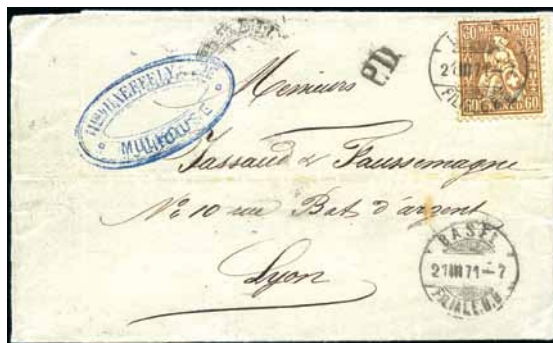 HAEFFELY
MULHOUSE
P.D.
60 HELVETIA 60
60 60
21 III 7
FILIALE
Messieurs
Jassaud & Faussemagne
No. 10 rue Bat d'argent
Lyon
BASEL
21 III 71 - 7
FILIALE.B.B